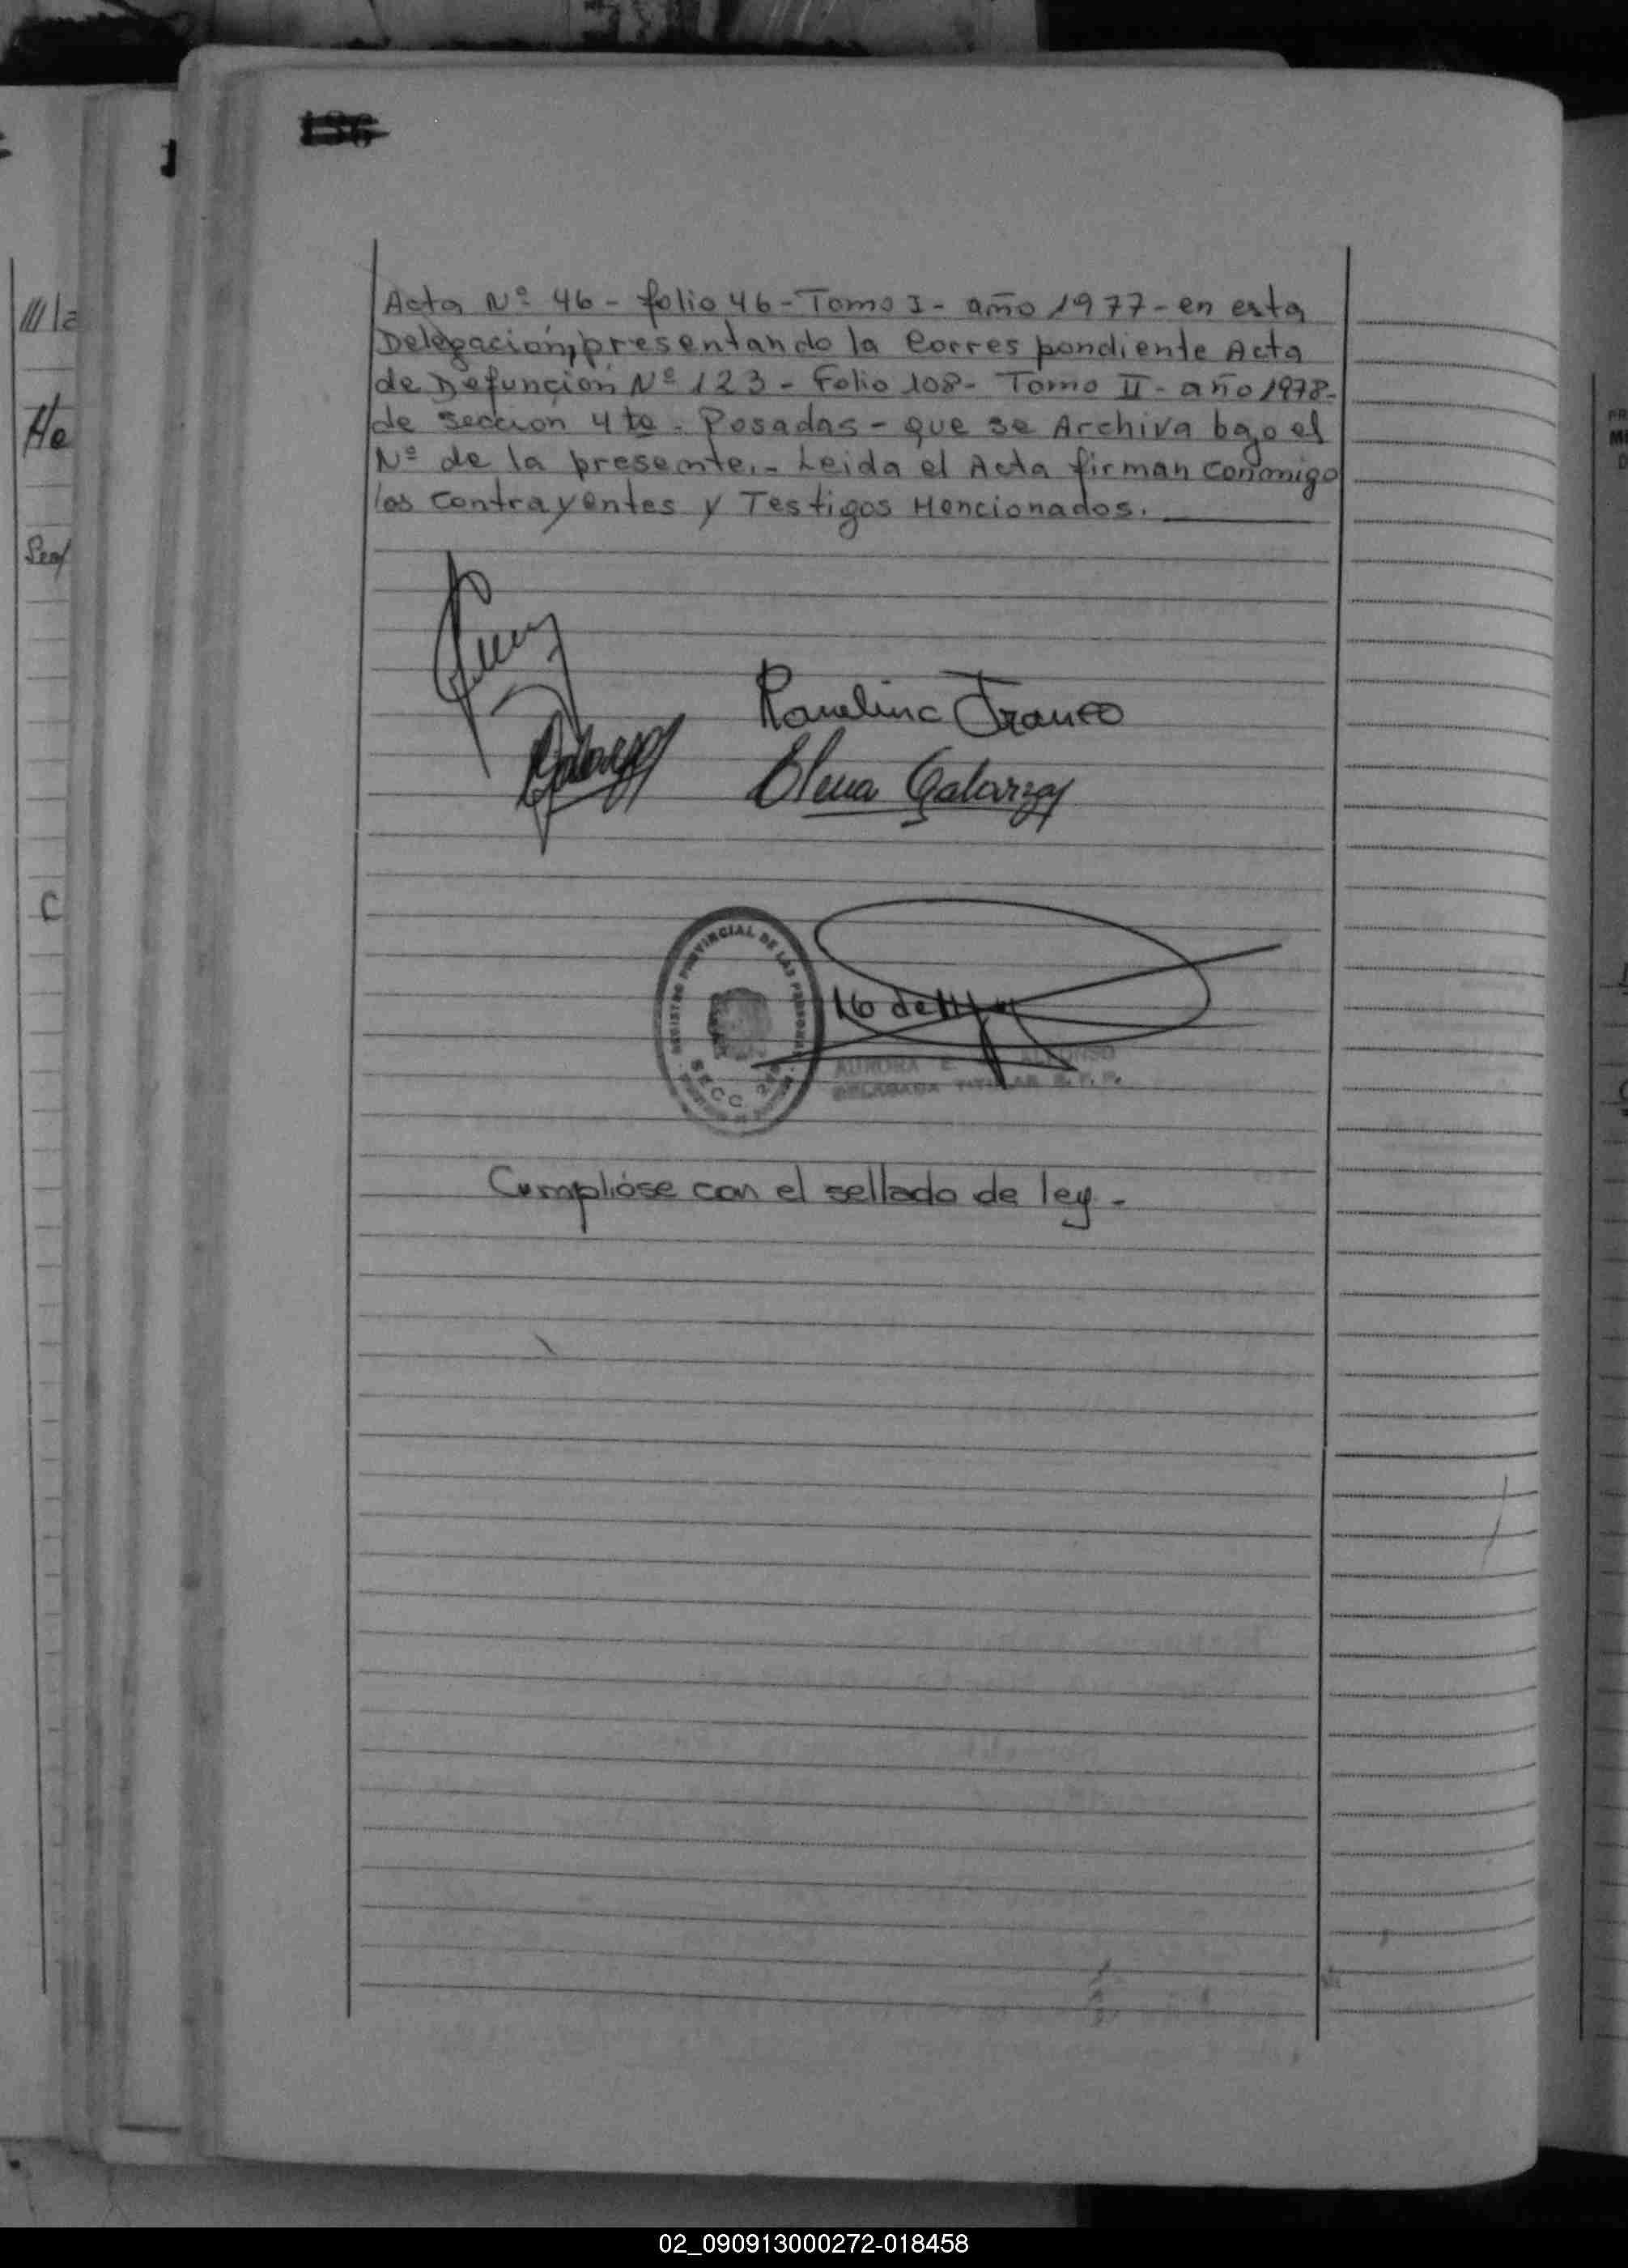 136
Acta Nº 46 - folio 46 - Tomo I - año 1977 - en esta
Delegación, presentando la Corres pondiente Acta
de Defunción Nº 123 - Folio 108 - Tomo II - año 1978 -
de sección 4ta - Posadas - que se Archiva bajo el
Nº de la presente. - Leida el Acta firman conmigo
los contrayentes y Testigos Mencionados.
Franco
Elena Galarza
REGISTRO PROVINCIAL DE LAS PERSONAS
SECC.
16 de
AURORA E. ALFONSO
TITULAR R. P. P.
Cumplióse con el sellado de ley -
02_090913000272-018458